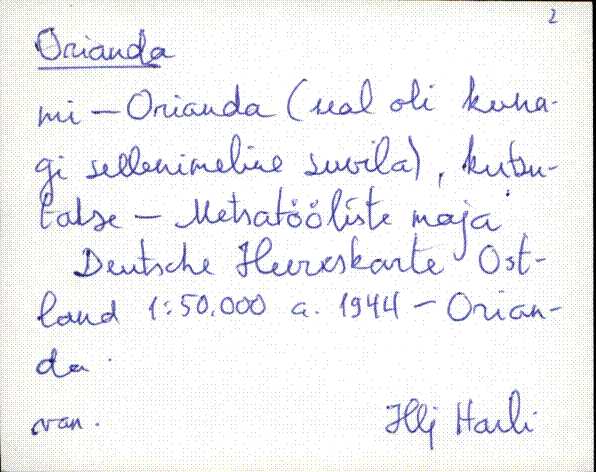 2
Orianda
mi – Orianda (seal oli kuna-
gi sellenimeline suvila), kutsu-
takse – Metsatööliste maja.
Deutsche Heereskarte Ost-
land 1:50.000 a. 1944 – Orian-
da.
van. Hlj Harli